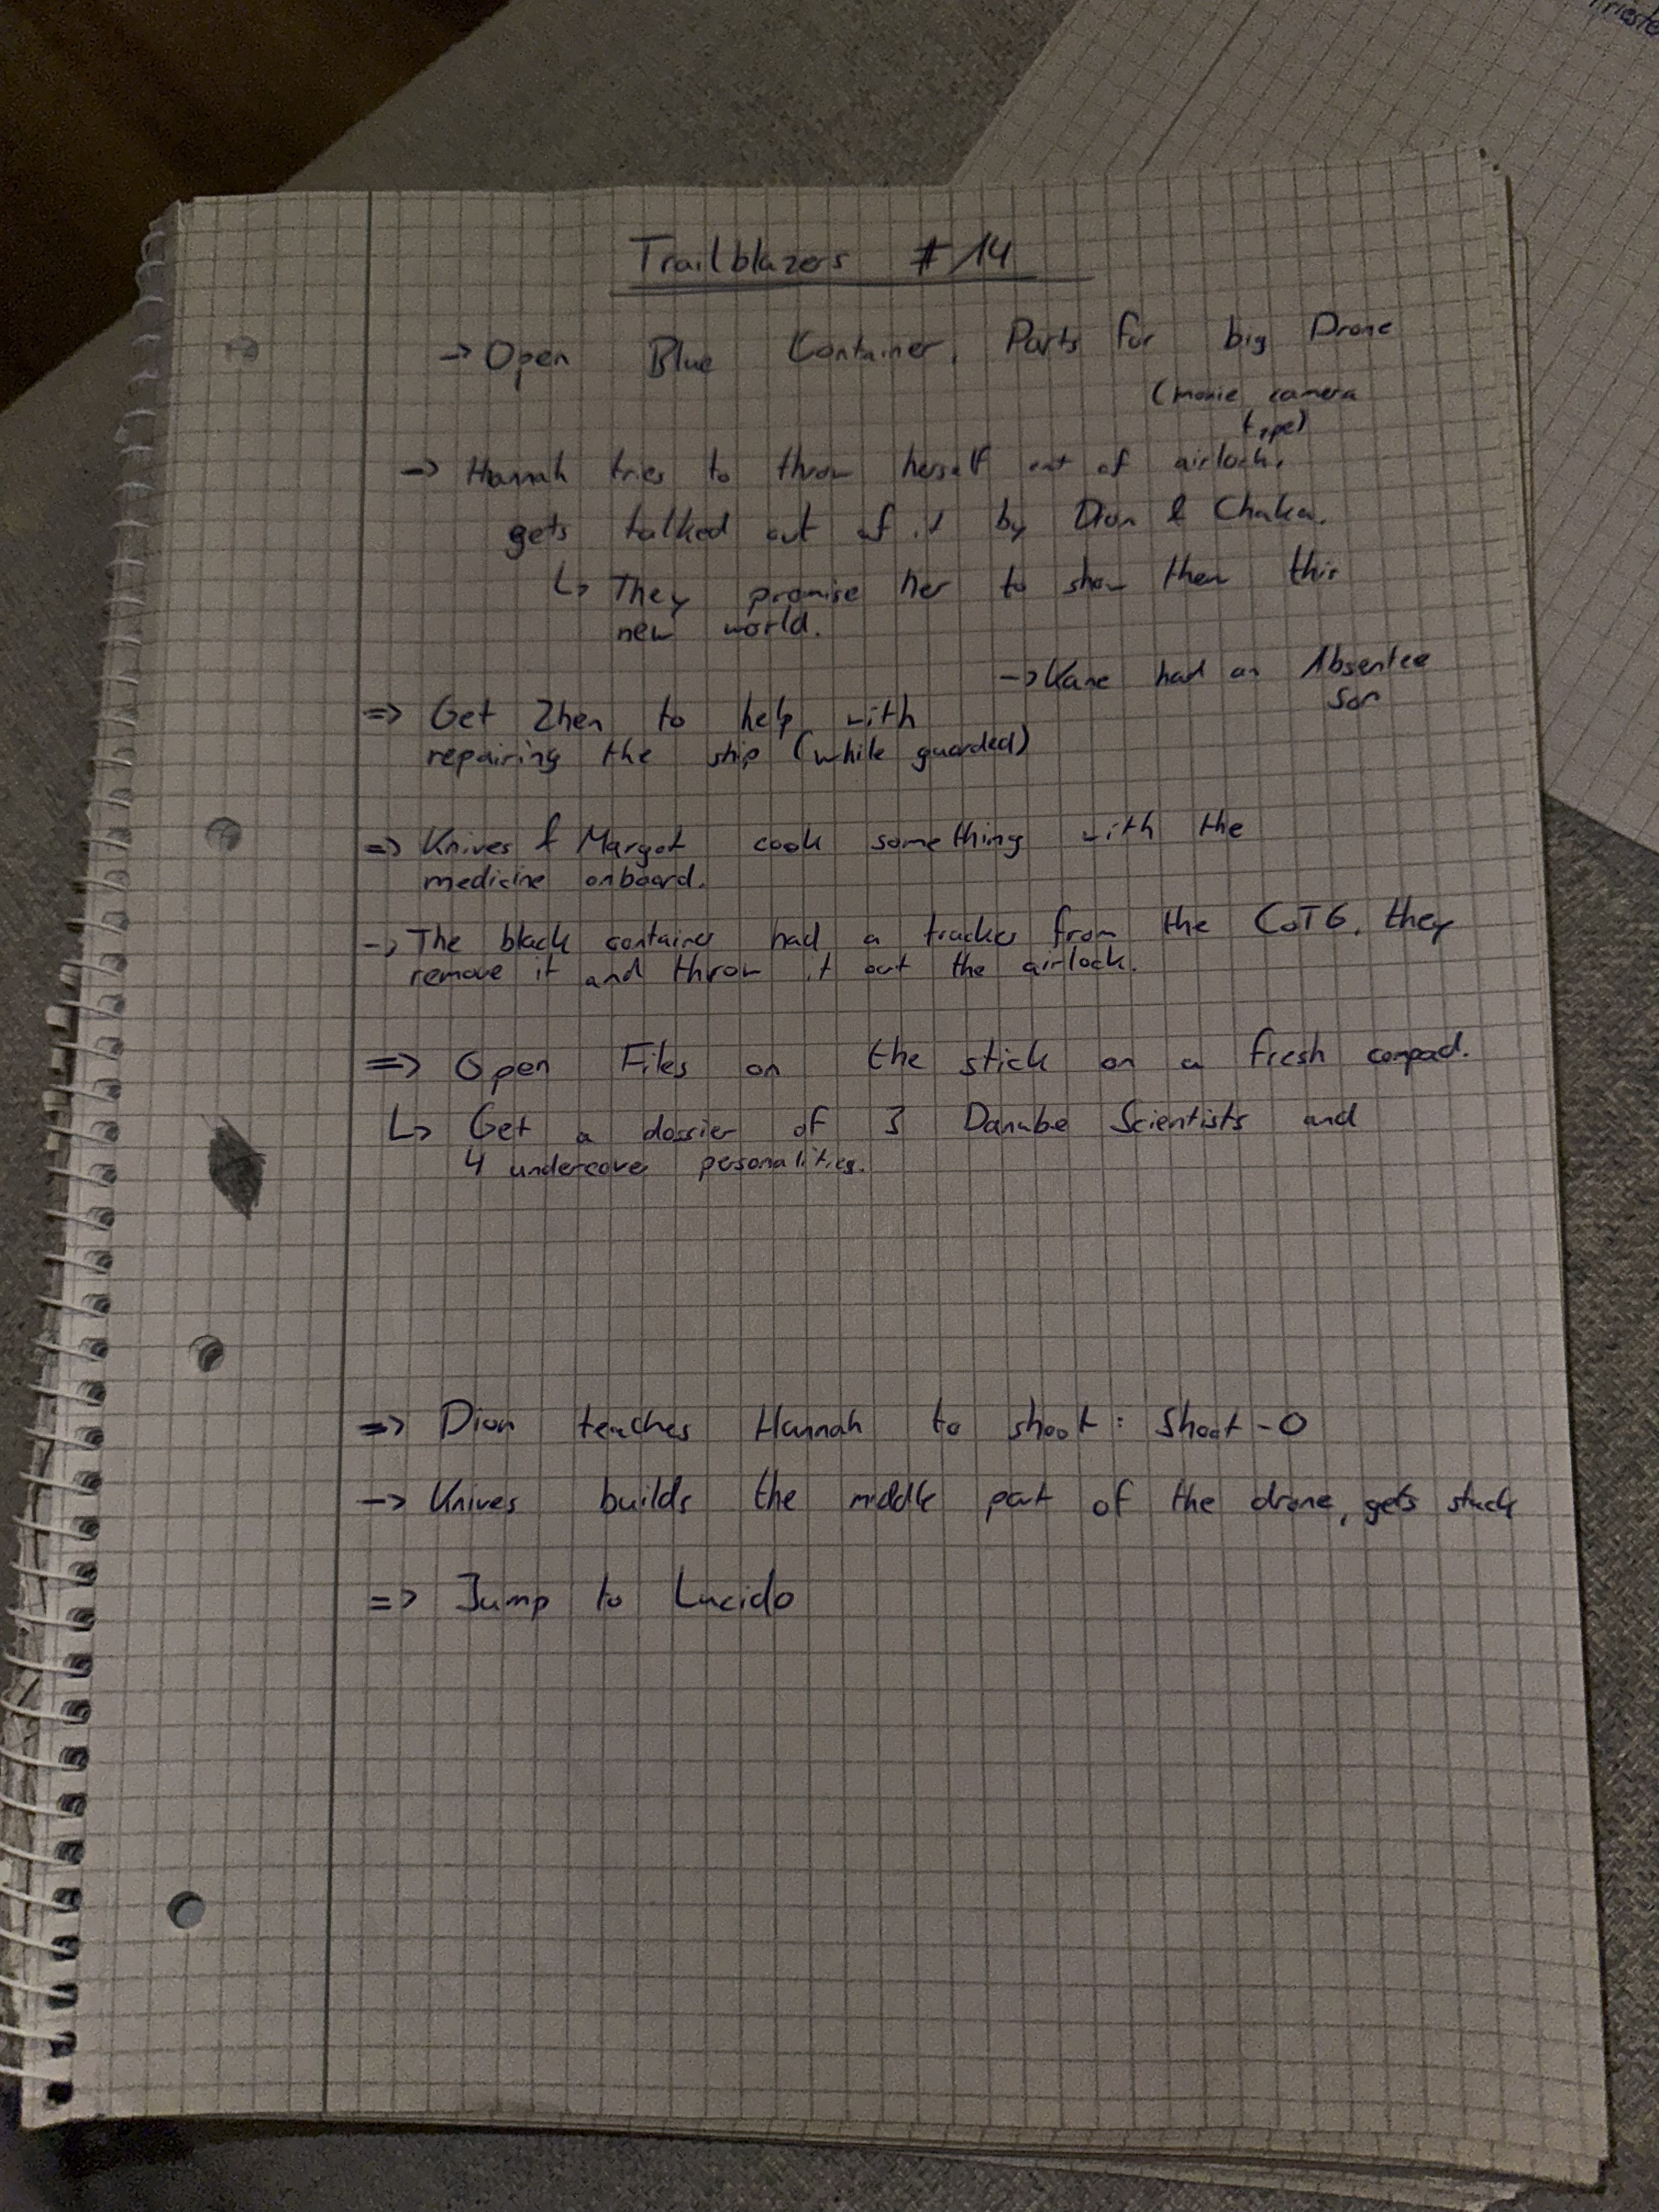 Trailblazers #14
-> Open Blue Container, Parts for big Drone
(movie camera
type)
-> Hannah tries to throw herself out of airlock,
gets talked out of it by Dion & Chaka.
↳ They promise her to show them this
new world.
-> Kane had an Absentee
son
=> Get Zhen to help with
repairing the ship (while guarded)
=> Knives & Margot cook something with the
medicine onboard.
-> The black container had a tracker from the CoTG, they
remove it and throw it out the airlock.
=> Open Files on the stick on a fresh compad.
↳ Get a dossier of 3 Danube Scientists and
4 undercover personalities.
=> Dion teaches Hannah to shoot: Shoot-0
-> Knives builds the middle part of the drone, gets stuck
=> Jump to Lucido